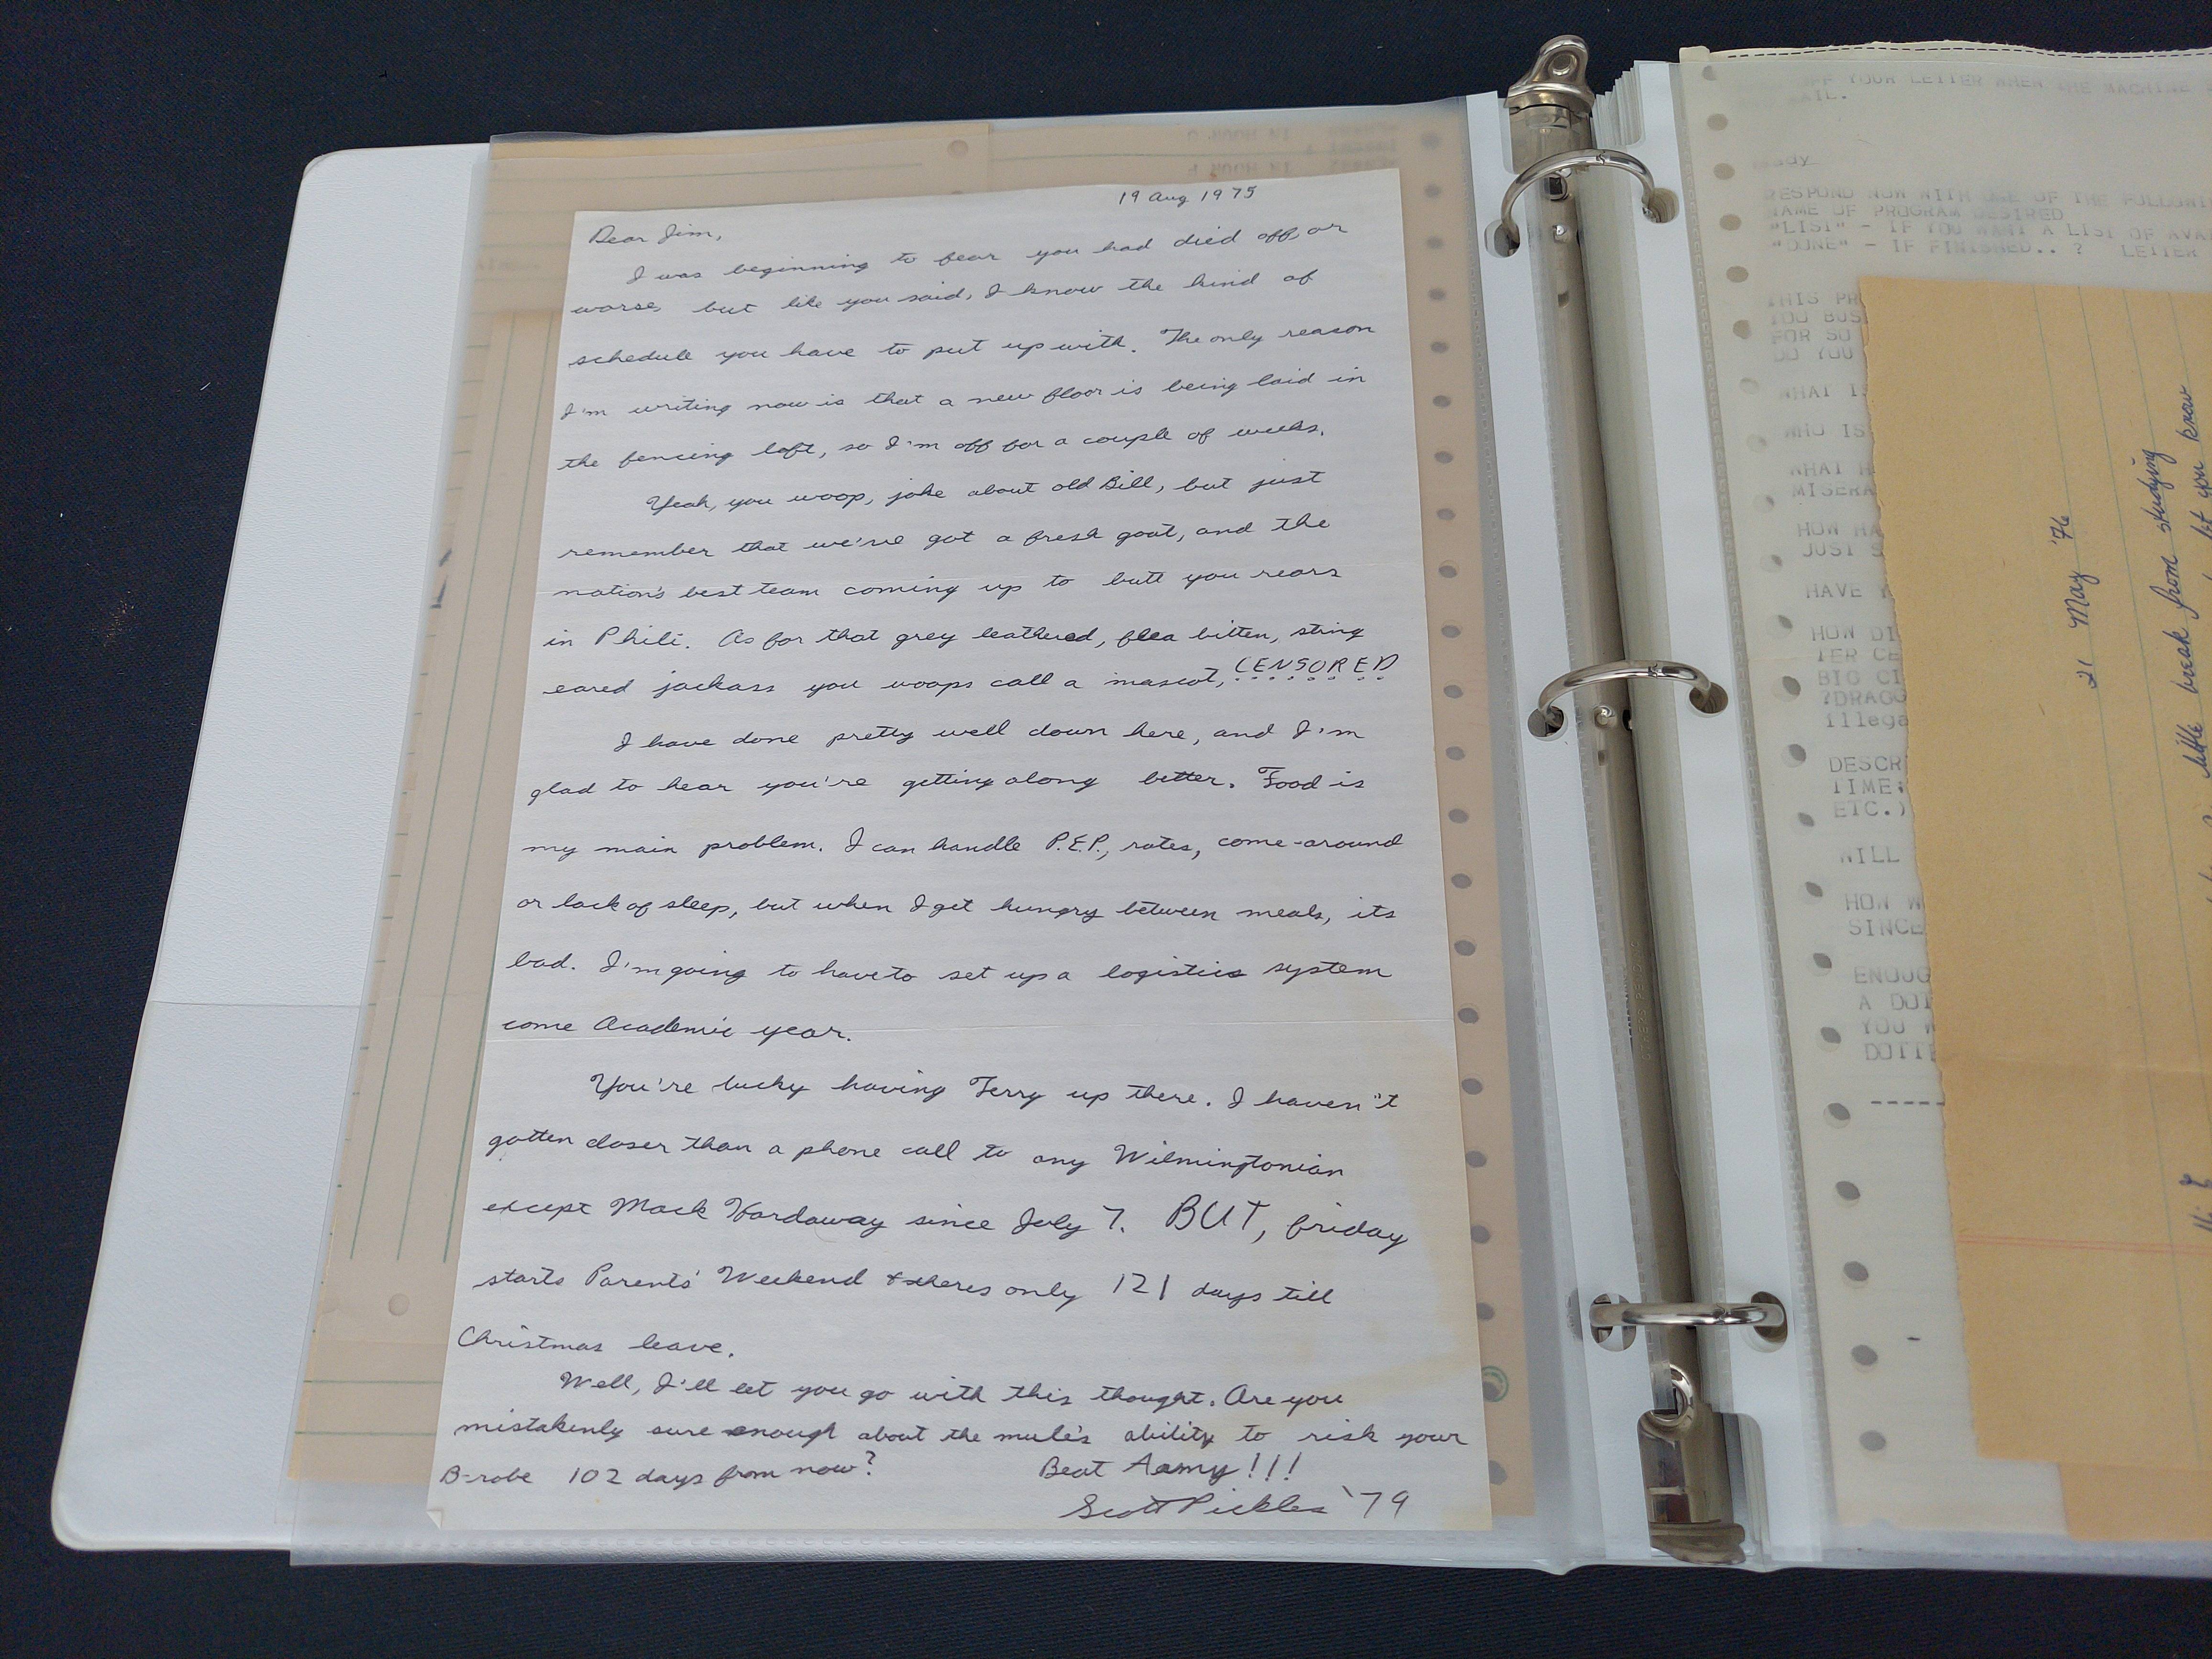 19 Aug 1975
Dear Jim,
I was beginning to fear you had died off, or
worse, but like you said, I know the kind of
schedule you have to put up with. The only reason
I'm writing now is that a new floor is being laid in
the fencing loft, so I'm off for a couple of weeks.
Yeah, you woop, joke about old Bill, but just
remember that we've got a fresh goat, and the
nation's best team coming up to butt you rears
in Phili. As for that grey leathered, flea bitten, string
eared jackass you woops call a mascot, CENSORED
I have done pretty well down here, and I'm
glad to hear you're getting along better. Food is
my main problem. I can handle P.E.P., rates, come-around
or lack of sleep, but when I get hungry between meals, its
bad. I'm going to have to set up a logistics system
come Academic year.
You're lucky having Terry up there. I haven't
gotten closer than a phone call to any Wilmingtonian
except Mack Hardaway since July 7. BUT, friday
starts Parents' Weekend & theres only 121 days till
Christmas leave.
Well, I'll let you go with this thought. Are you
mistakenly sure enough about the mule's ability to risk your
B-robe 102 days from now?
Beat Army!!!
Scott Pickles '79
OFF YOUR LETTER WHEN THE MACHINE
RESPOND NOW WITH ONE OF THE FOLLOWI
NAME OF PROGRAM DESIRED
"LIST" - IF YOU WANT A LIST OF AVA
"DONE" - IF FINISHED.. ? LETTER
THIS PR
YOU BUS
FOR SO
DO YOU
WHAT I
WHO IS
WHAT H
MISERA
HOW HA
JUST S
HAVE Y
HOW DI
TER CE
BIG CI
?DRAGG
illega
DESCR
TIME;
ETC.)
WILL
HOW W
SINCE
ENOUG
A DOI
YOU W
DOTTE
-----
21 May '76
little break from studying
let you know